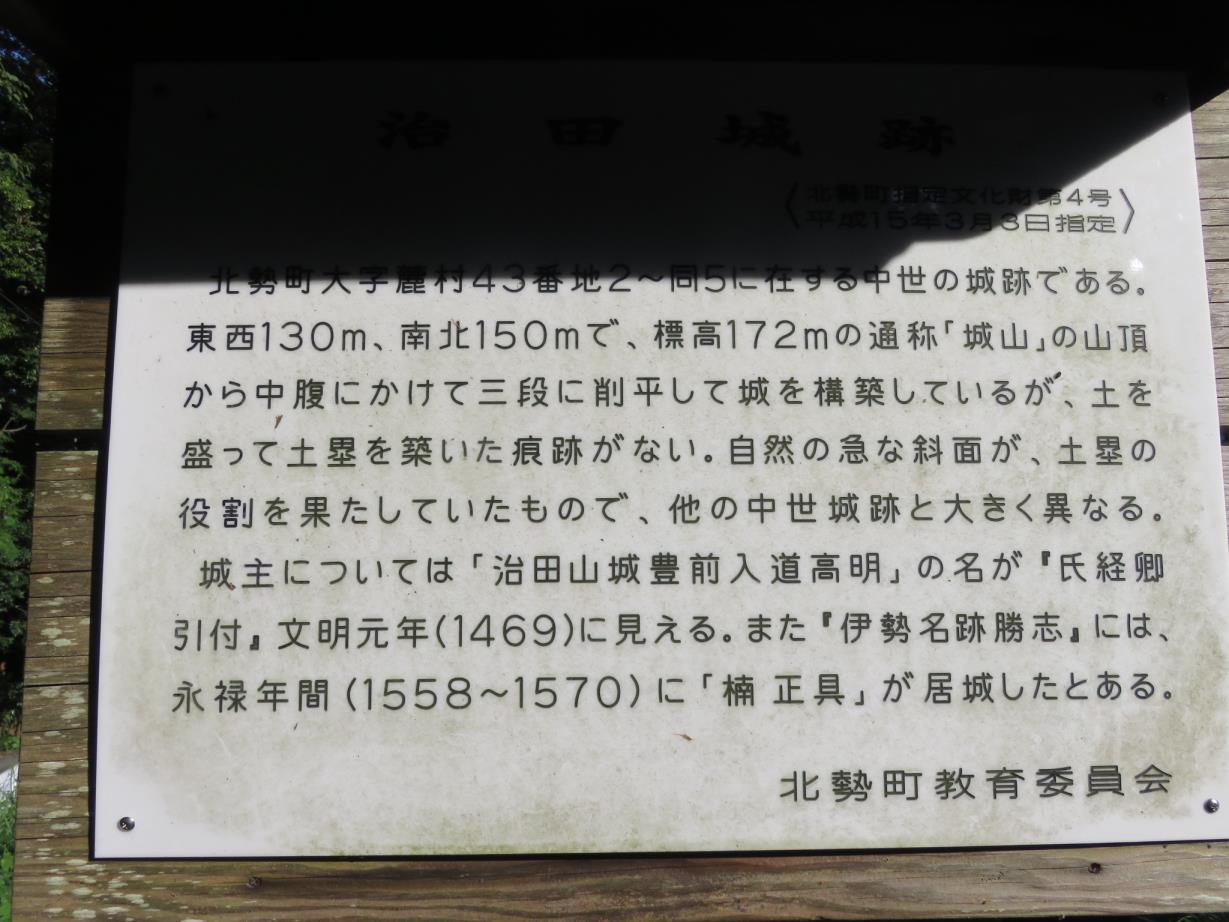 治田城跡
〈北勢町指定文化財第4号
平成15年3月3日指定〉
北勢町大字麓村43番地2～同5に在する中世の城跡である。
東西130m、南北150mで、標高172mの通称「城山」の山頂
から中腹にかけて三段に削平して城を構築しているが、土を
盛って土塁を築いた痕跡がない。自然の急な斜面が、土塁の
役割を果たしていたもので、他の中世城跡と大きく異なる。
城主については「治田山城豊前入道高明」の名が『氏経卿
引付』文明元年(1469)に見える。また『伊勢名跡勝志』には、
永禄年間(1558～1570)に「楠 正具」が居城したとある。
北勢町教育委員会